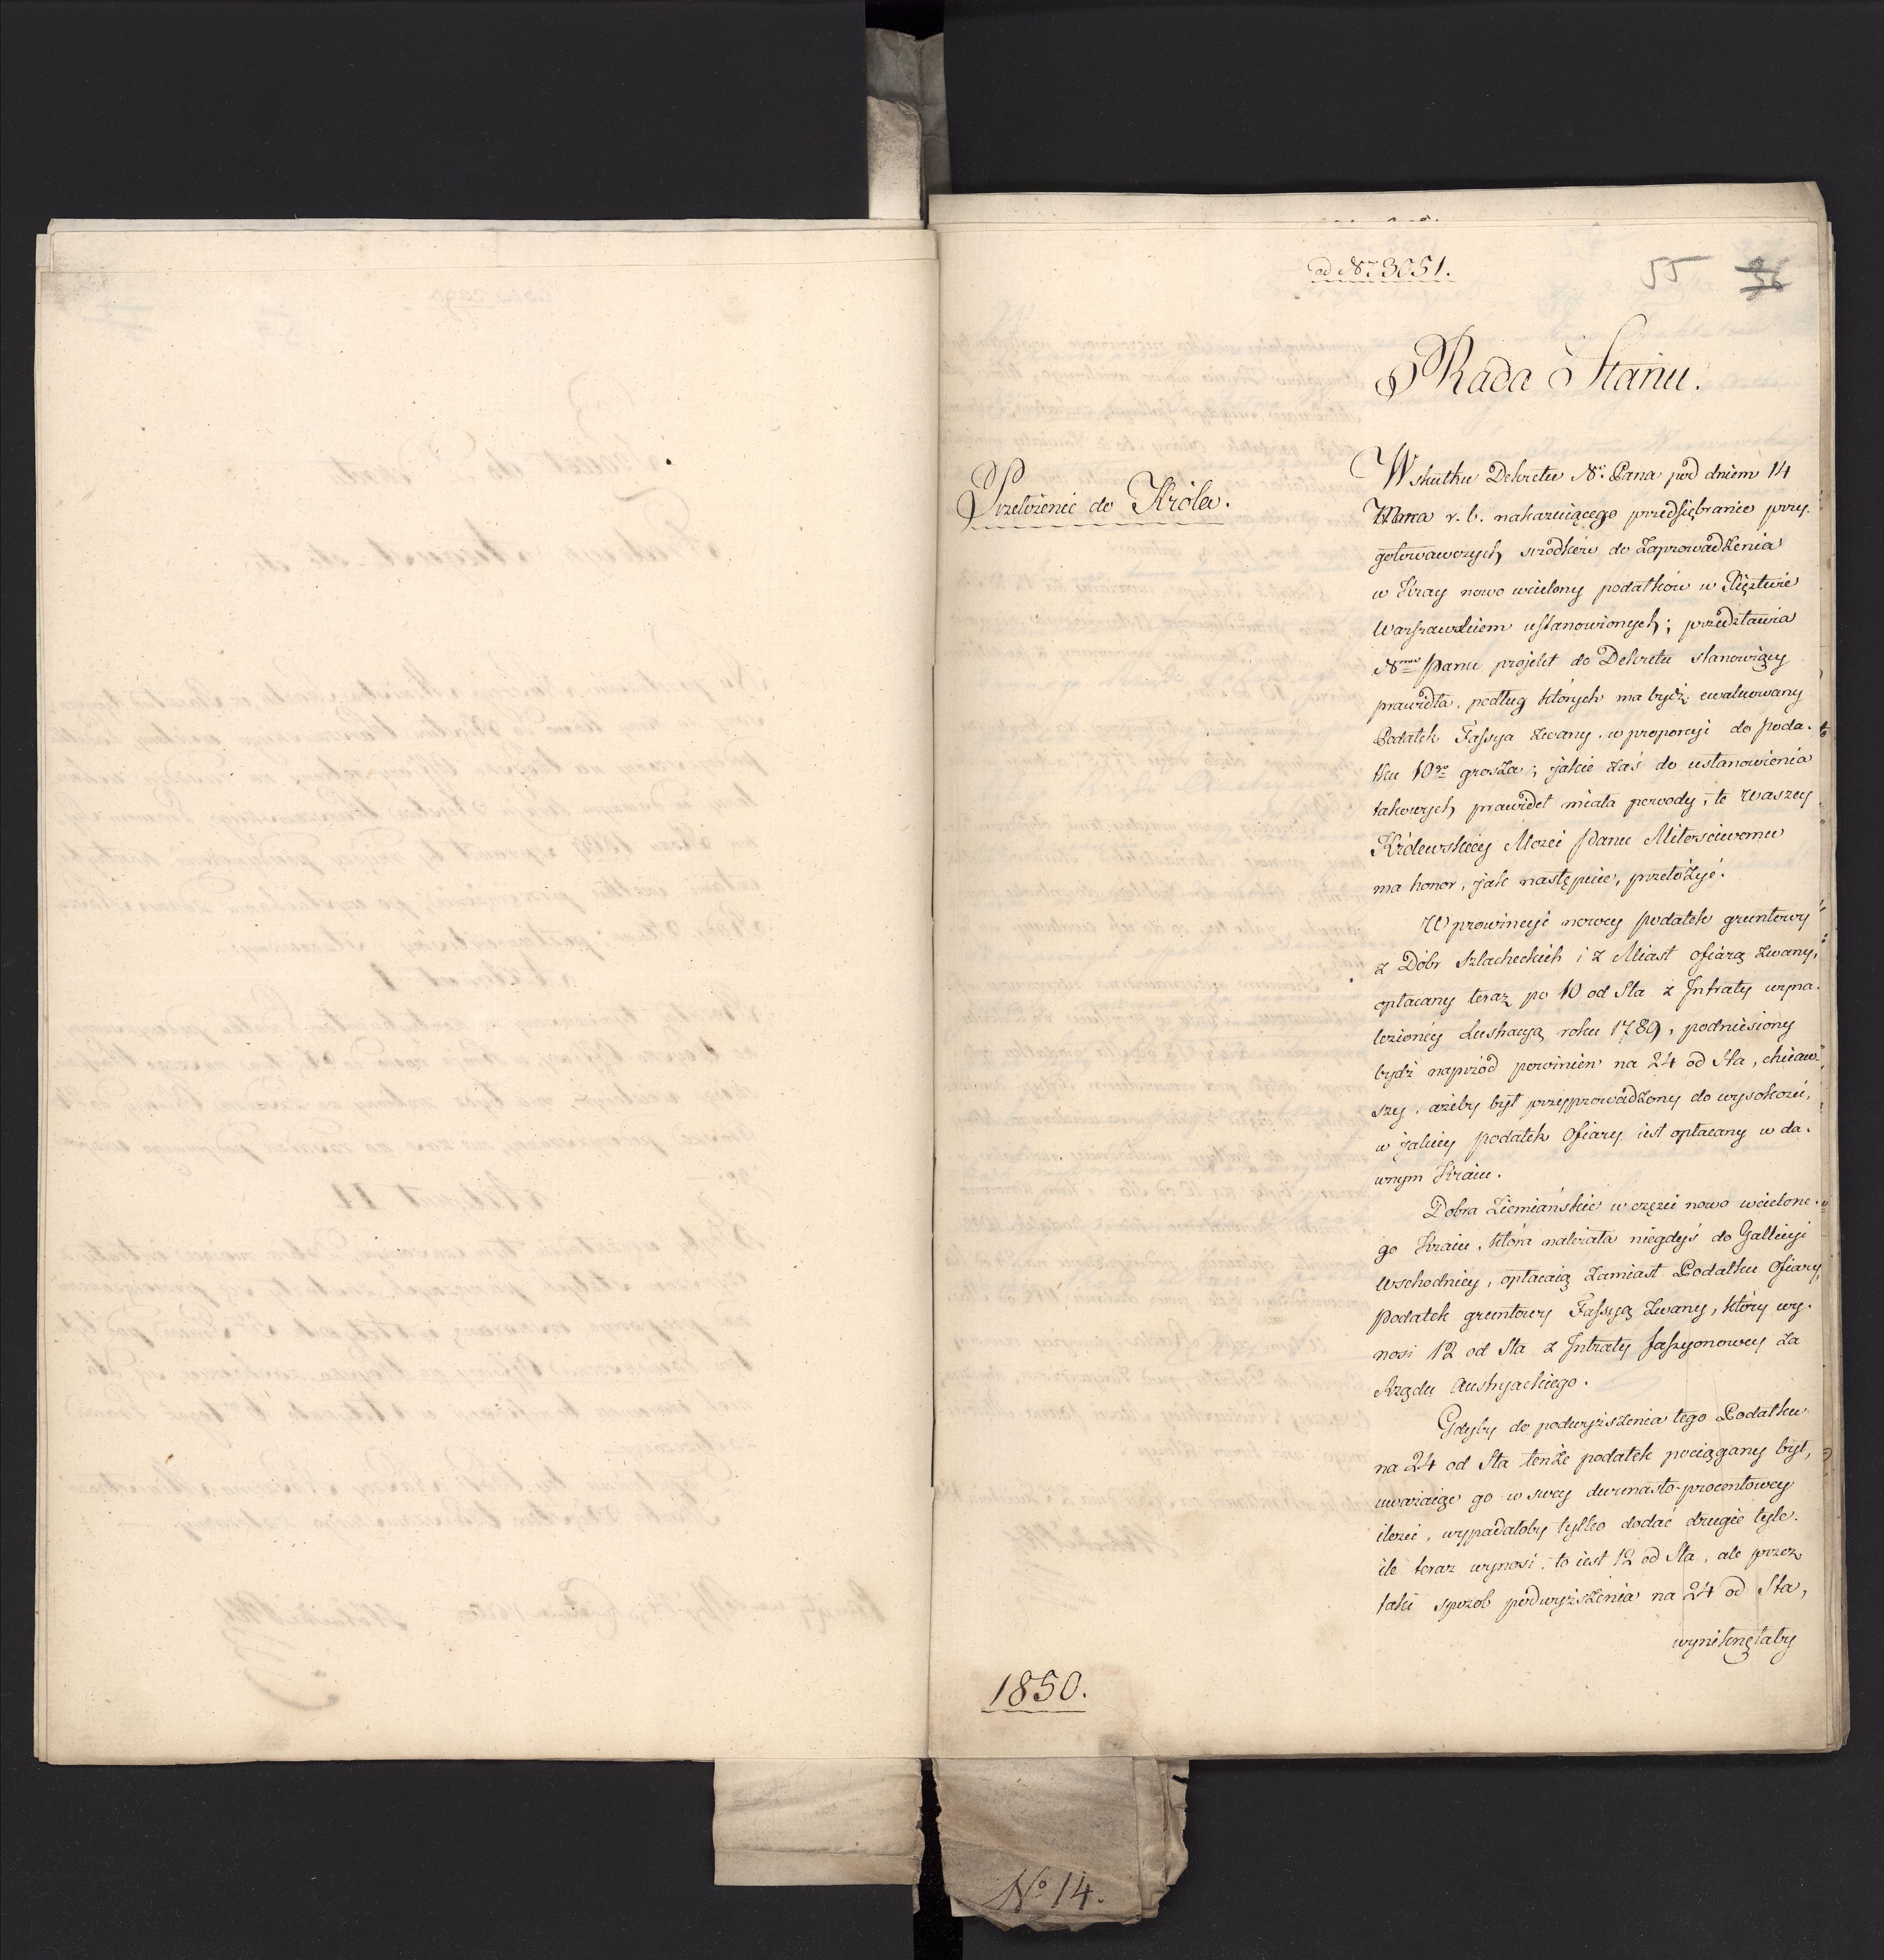 ad Nr 3051.
55
36
Rada Stanu.
Przełożenie do Króla.
W skutku Dekretu N. Pana pod dniem 14
Marca r. b. nakazuiącego przedsiębranie przy-
gotowawczych srzodków do zaprowadzenia
w Kray nowo wcielony podatków w Xięztwie
Warszawskiem ustanowionych; przedstawia
Nmu Panu projekt do Dekretu stanowiący
prawidła, podług których ma bydź ewaluowany
Podatek Fassya zwany, w proporcyi do Poda-
tku 10go grosza; jakie zaś do ustanowienia
takowych prawideł miała powody, te Waszey
Królewskiey Mości Panu Miłościwemu
ma honor, jak następuie, przełożyć.
W prowincyi nowey podatek gruntowy
z Dóbr Szlacheckich i z Miast ofiarą zwany,
opłacany teraz po 10 od Sta z Intraty wyna-
lezioney Lustracyą roku 1789, podniesiony
bydź naprzód powinien na 24 od Sta, chciaw-
szy, ażeby był przyprowadzony do wysokości,
w jakiey podatek Ofiary iest opłacany w da-
wnym Kraiu.
Dobra Ziemiańskie w części nowo wcielone-
go Kraiu, która należała niegdyś do Gallicyi
Wschodniey, opłacaią zamiast Podatku Ofiary,
Podatek gruntowy Fassyą zwany, który wy-
nosi 12 od Sta z Intraty fassyonowey za
Rządu Austryackiego.
Gdyby do podwyższenia tego Podatku
na 24 od Sta tenże podatek pociągany był,
uważaiąc go w swey dwunasto-procentowey
ilości, wypadałoby tylko dodać drugie tyle,
ile teraz wynosi, to iest 12 od Sta, ale przez
taki sposób podwyższenia na 24 od Sta,
wyniknęłaby
1850.
No 14.